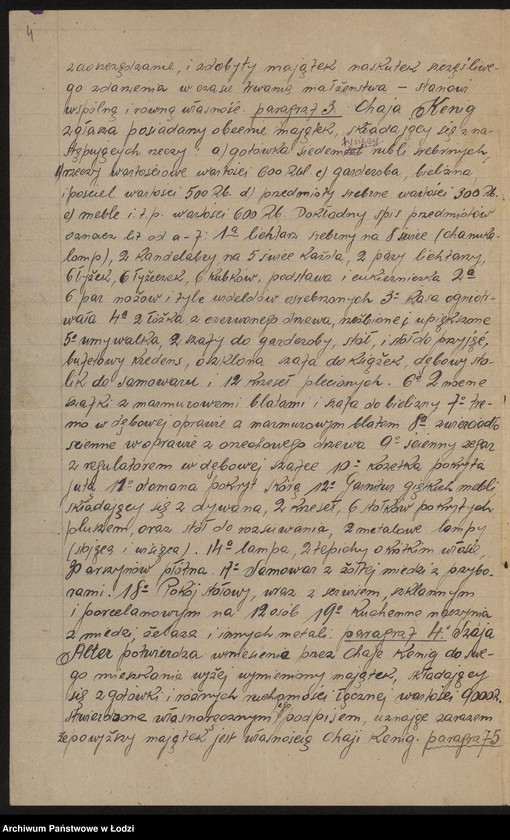 4
zaoszczędzanie, i zdobyty majątek naskutek szczęśliwe-
go zdarzenia w czasie trwania małżeństwa – stanowi
wspólną i równą własność. paragraf 3. Chaja Kenig
zgłasza posiadany obecnie majątek, składający się z na-
stępujących rzeczy: a) gotówka siedem tysięcy rubli srebrnych,
b) rzeczy wartościowe wartości 600 Rbl. c) garderoba, bielizna,
i pościel wartości 500 Rb. d) przedmioty srebrne wartości 300 Rb.
e) meble i t p. wartości 600 Rb. Dokładny spis przedmiotów
oznacz. lit od a – 7: 1º lichtarz srebrny na 8 świec (chanuko-
lamp), 2 kandelabry na 5 świec każda, 2 pary lichtarzy,
6 łyżek, 6 łyżeczek, 6 kubków, podstawa i cukierniczka 2º
6 par nożów i tyle widelców osrebrzonych 3º Kasa ogniotr-
wała 4º 2 łóżka z czerwonego drzewa, rzeźbione i upiększone
5º umywalka, 2 szafy do garderoby, stół, i stół do przyjęć,
bufetowy kredens, oszklona szafa do książek, dębowy sto-
lik do samowaru i 12 krzeseł plecionych. 6º 2 nocne
szafki z marmurowemi blatami i szafa do bielizny 7º tre-
mo w dębowej oprawie z marmurowym blatem 8º zwierciadło
ścienne w oprawie z orzechowego drzewa 9º ścienny zegar
z regulatorem w dębowej szafce 10º kozetka pokryta
jutą 11º otomana pokryt. skórą 12º Garnitur giętkich mebli
składający się z dywana, 2 krzeseł, 6 stołków pokrytych
pluszem, oraz stół do rozsuwania, 2 metalowe lampy
(stojąca i wisząca). 14º lampa, 2 tepichy o krótkim włosie,
arszynów płótna. 17º Samowar z żółtej miedzi z przybo-
rami. 18º Pokój stołowy, wraz z serwisem, szklannym
i porcelanowym na 12 osób 19º Kuchenne naczynia
z miedzi, żelaza i innych metali. paragraf 4º Szaja
Alter potwierdza wniesienie przez Chaję Kenig do swe-
go mieszkania wyżej wymieniony majątek, składający
się z gotówki i różnych ruchomości łącznej wartości 9000 R.
stwierdzone własnoręcznym jego podpisem, uznaję zarazem
że powyższy majątek jest własnością Chaji Kenig. paragraf 5
Archiwum Państwowe w Łodzi